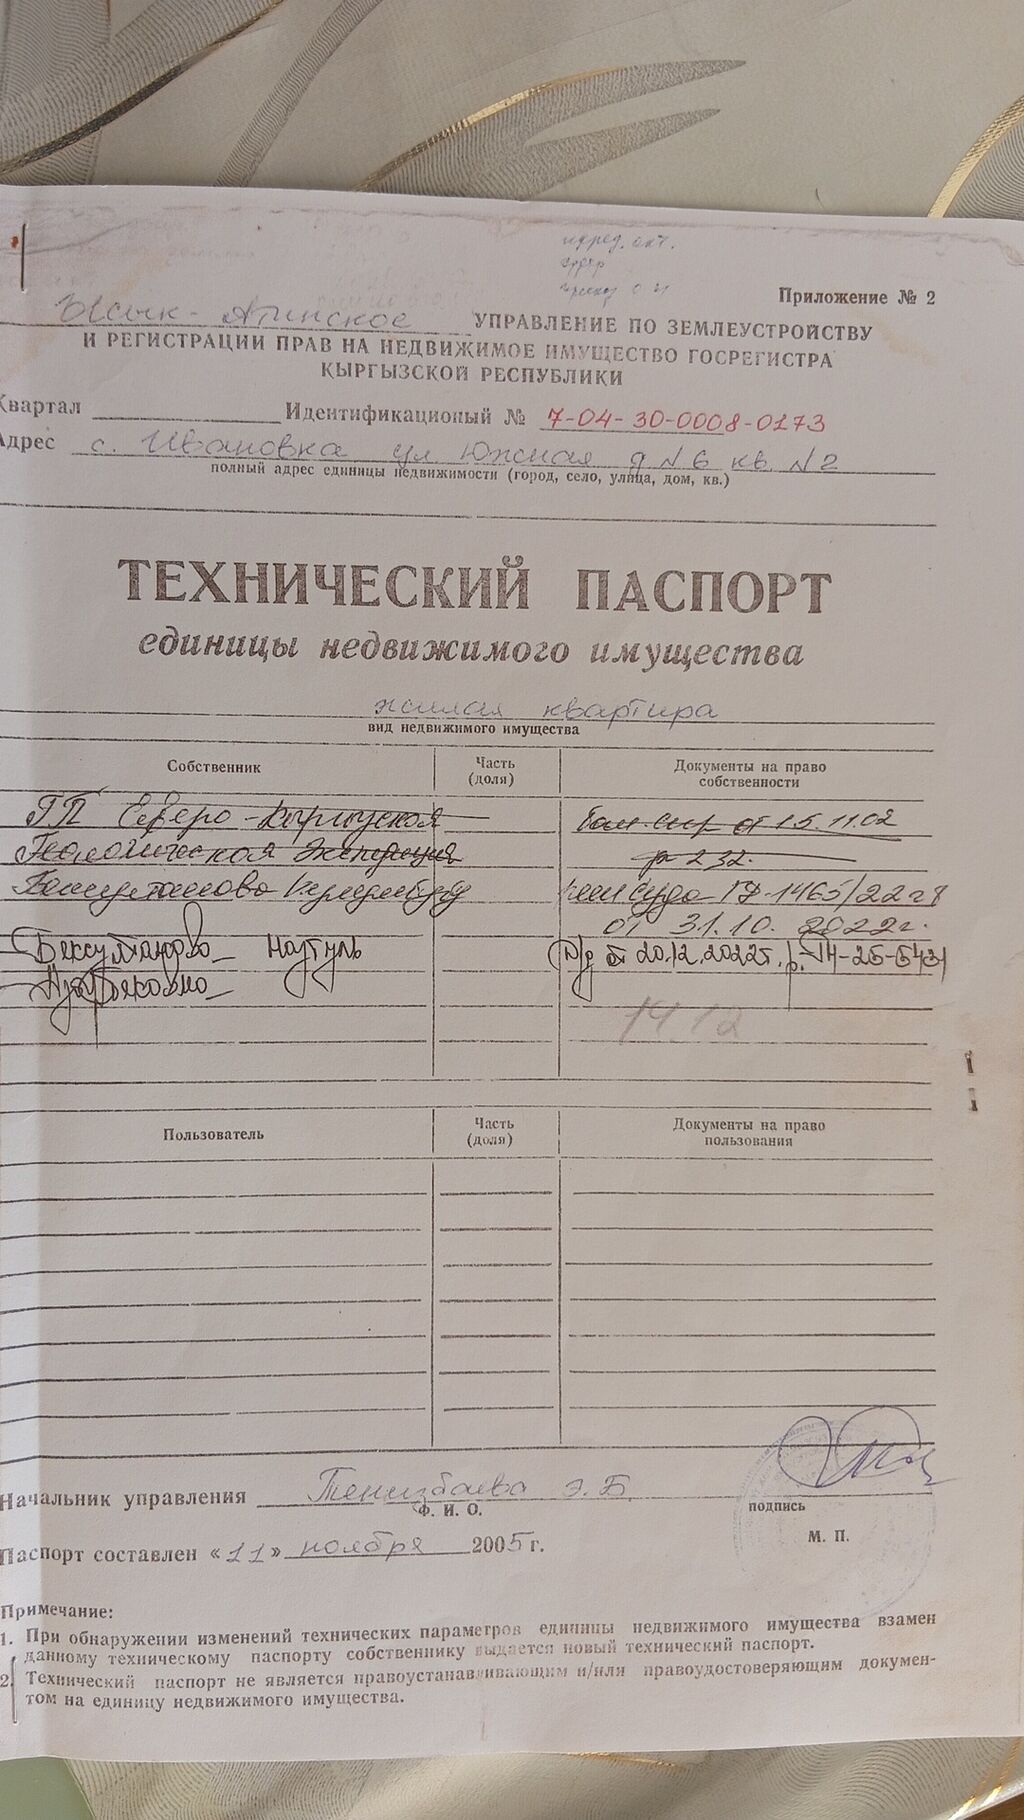 Приложение № 2
Ысык-Атинское УПРАВЛЕНИЕ ПО ЗЕМЛЕУСТРОЙСТВУ
И РЕГИСТРАЦИИ ПРАВ НА НЕДВИЖИМОЕ ИМУЩЕСТВО ГОСРЕГИСТРА
КЫРГЫЗСКОЙ РЕСПУБЛИКИ
Квартал Идентификационный № 7-04-30-0008-0173
Адрес с. Ивановка ул. Южная д N 6 кв. N 2
полный адрес единицы недвижимости (город, село, улица, дом, кв.)
ТЕХНИЧЕСКИЙ ПАСПОРТ
единицы недвижимого имущества
жилая квартира
вид недвижимого имущества
Собственник Часть (доля) Документы на право собственности
ГП Северо-Кыргызская от 15.11.02
Геологическая экспедиция р 232.
суда ГД-1465/22
от 31.10.2022г.
БексултановаНазгуль Д/д от 20.12.2022г.
Пользователь Часть (доля) Документы на право пользования
Начальник управления Тенизбаева Э.Б.
Ф. И. О. подпись
М. П.
Паспорт составлен «11» ноября 2005 г.
Примечание:
1. При обнаружении изменений технических параметров единицы недвижимого имущества взамен
данному техническому паспорту собственнику выдается новый технический паспорт.
2. Технический паспорт не является правоустанавливающим и/или правоудостоверяющим докумен-
том на единицу недвижимого имущества.